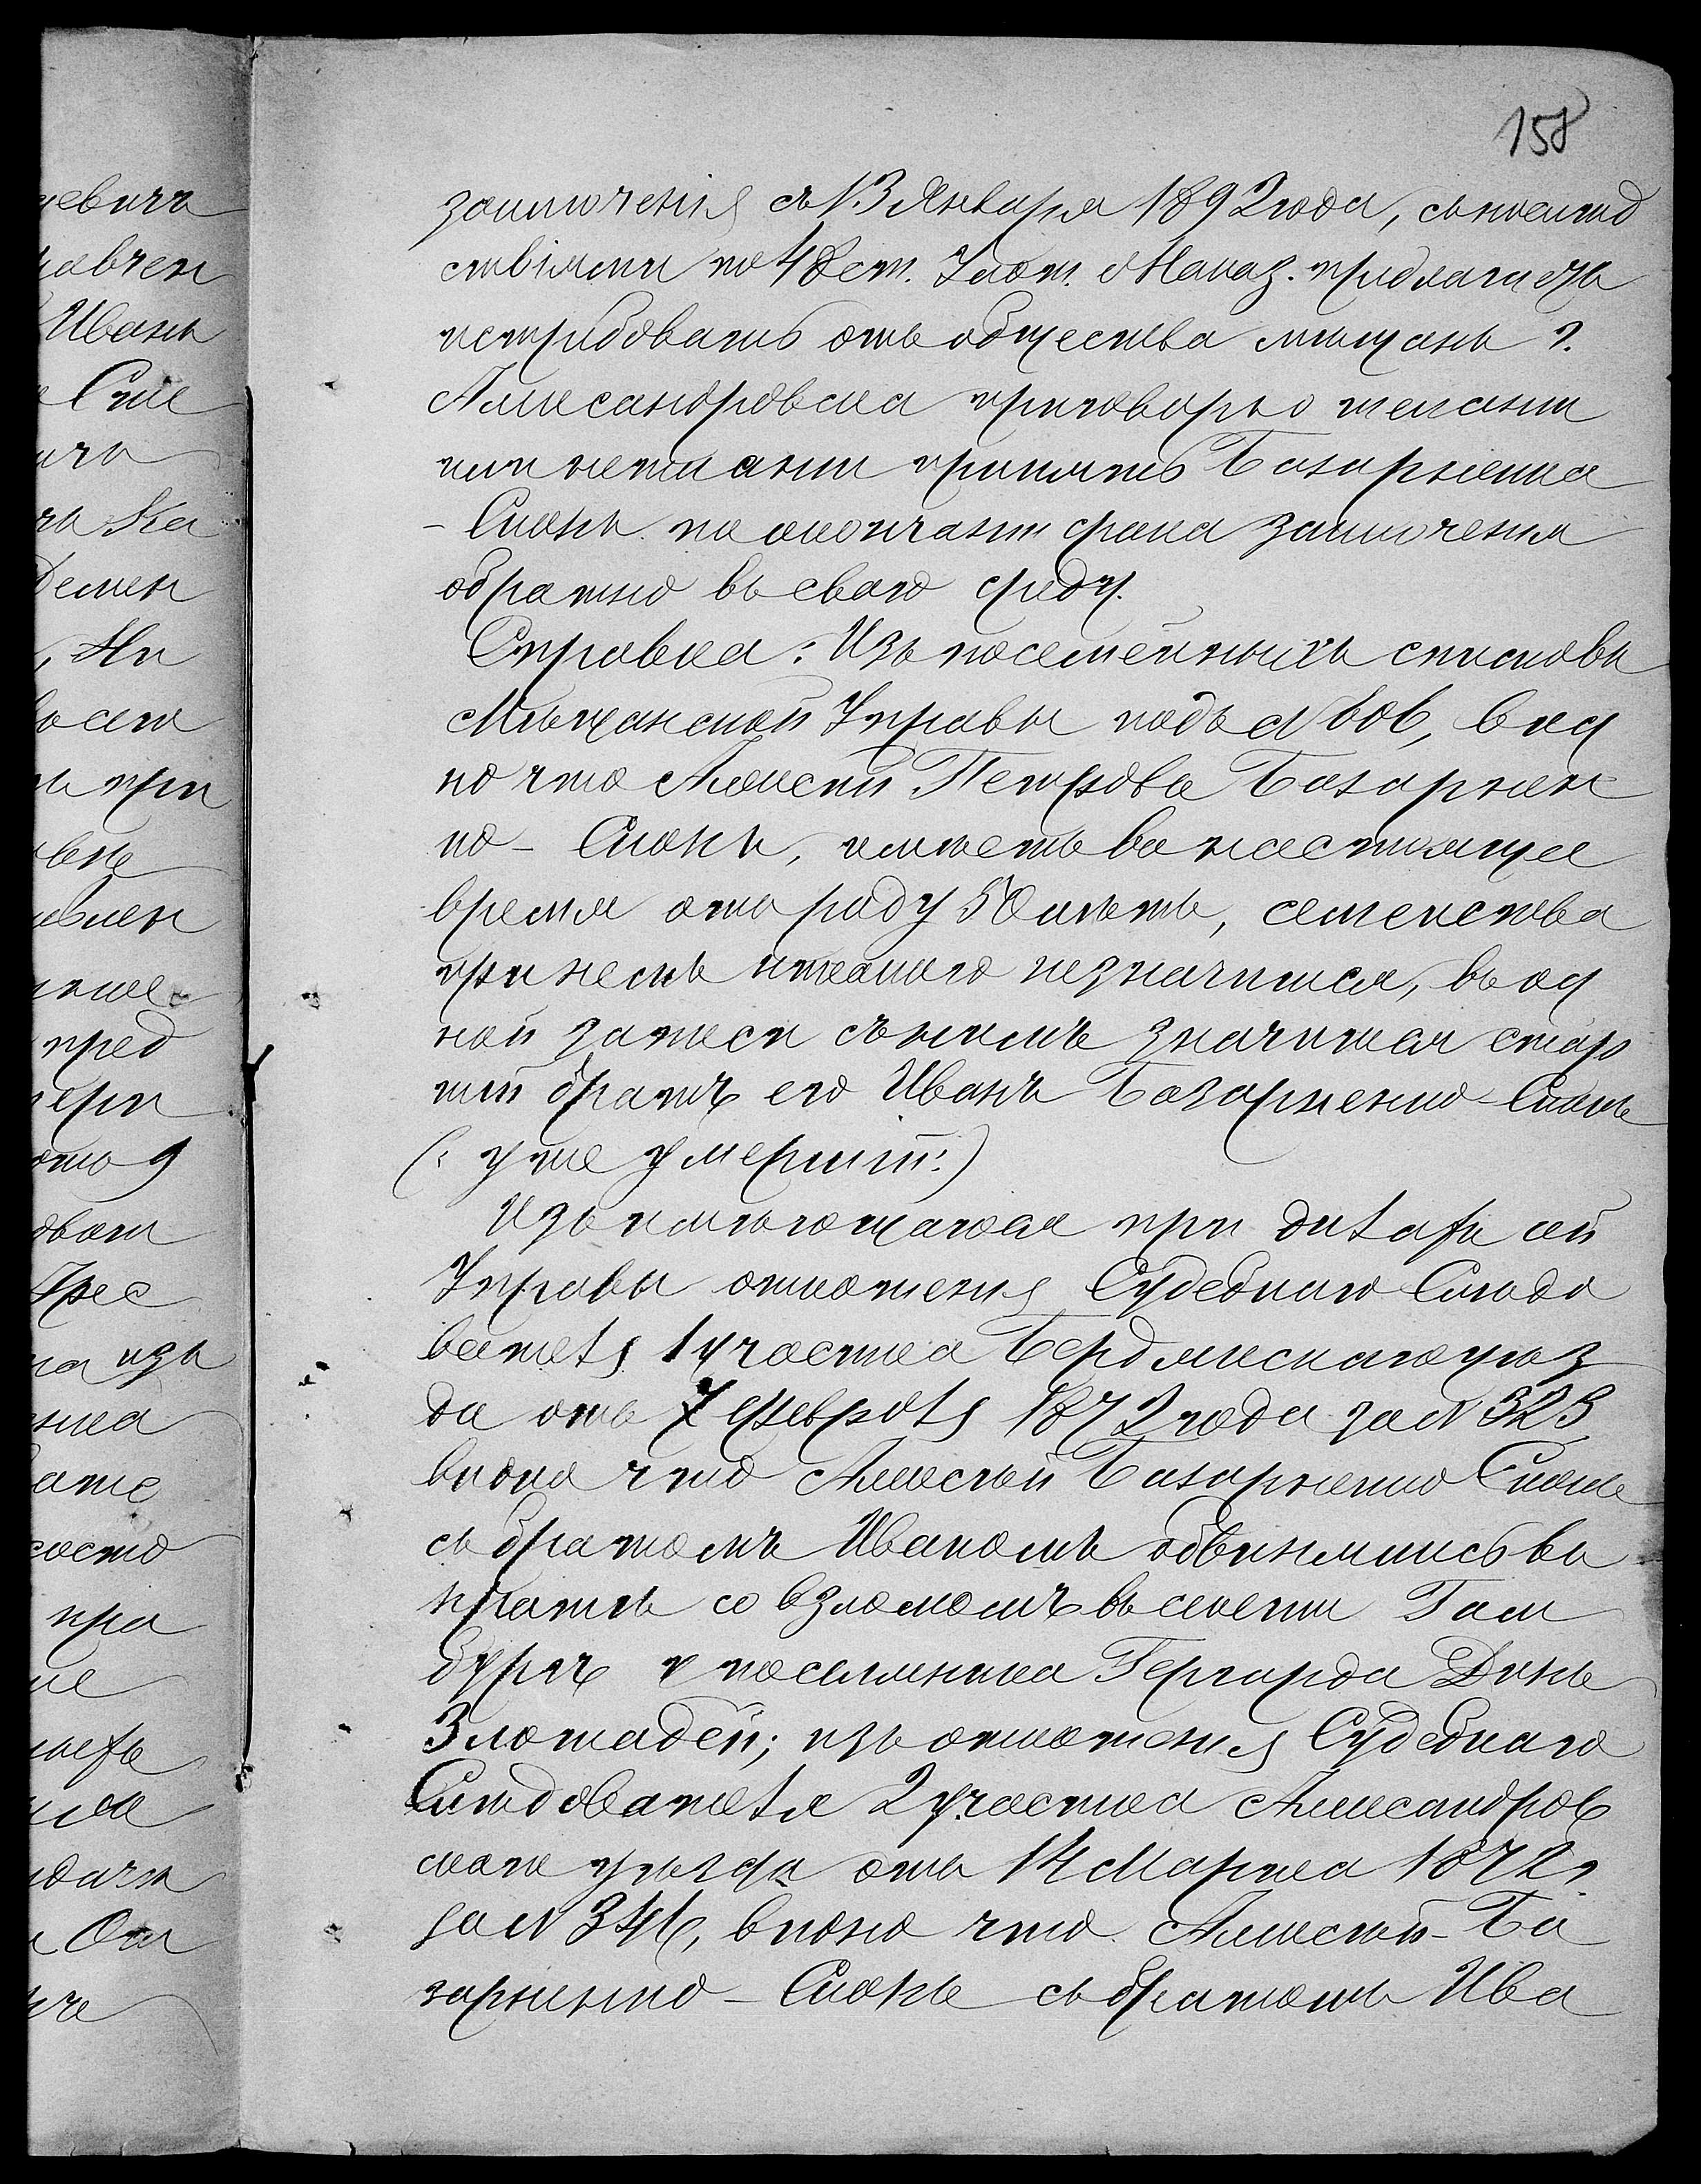 158
заключенія съ 13 Января 1892 года, съ послѣд
ствіями по 48 ст. Улож. о Наказ. предлагаетъ
истребовать отъ общества мѣщанъ г.
Александровска приговоръ о желаніи
или нежеланіи принять Базарненка
- Сконъ по окончаніи срока заключенія
обратно въ свою среду.
Справка: Изъ посемейныхъ списковъ
Мѣщанской Управы подъ № 606, вид
но что Алексѣй Петровъ Базарнен
ко - Сконъ, имѣетъ въ настоящее
время отъ роду 50 лѣтъ, семейства
при немъ никакого незначится, въ од
ной записи съ нимъ значится стар
шій братъ его Иванъ Базарненко - Сконъ
(: уже умершій:)
Изъ имѣющагося при дѣлахъ сей
Управы отношенія Судебнаго Слѣдо
вателя 1 участка Бердянскаго уѣз
да отъ 7 Февраля 1872 года за № 325
видно что Алексѣй Базарненко Сконъ
съ братомъ Иваномъ обвинялись въ
кражѣ со взломомъ въ селеніи Гам
бургъ у поселянина Гергарда Дикъ
3 лошадей; изъ отношенія Судебнаго
Слѣдователя 2 участка Александров
скаго уѣзда отъ 14 Марта 1872 г
за № 346, видно что Алексѣй - Ба
зарненко - Сконъ съ братомъ Ива
евича
авчен
Иванъ
Ка
Демен
, Ни
при
пред
9
изъ
пра